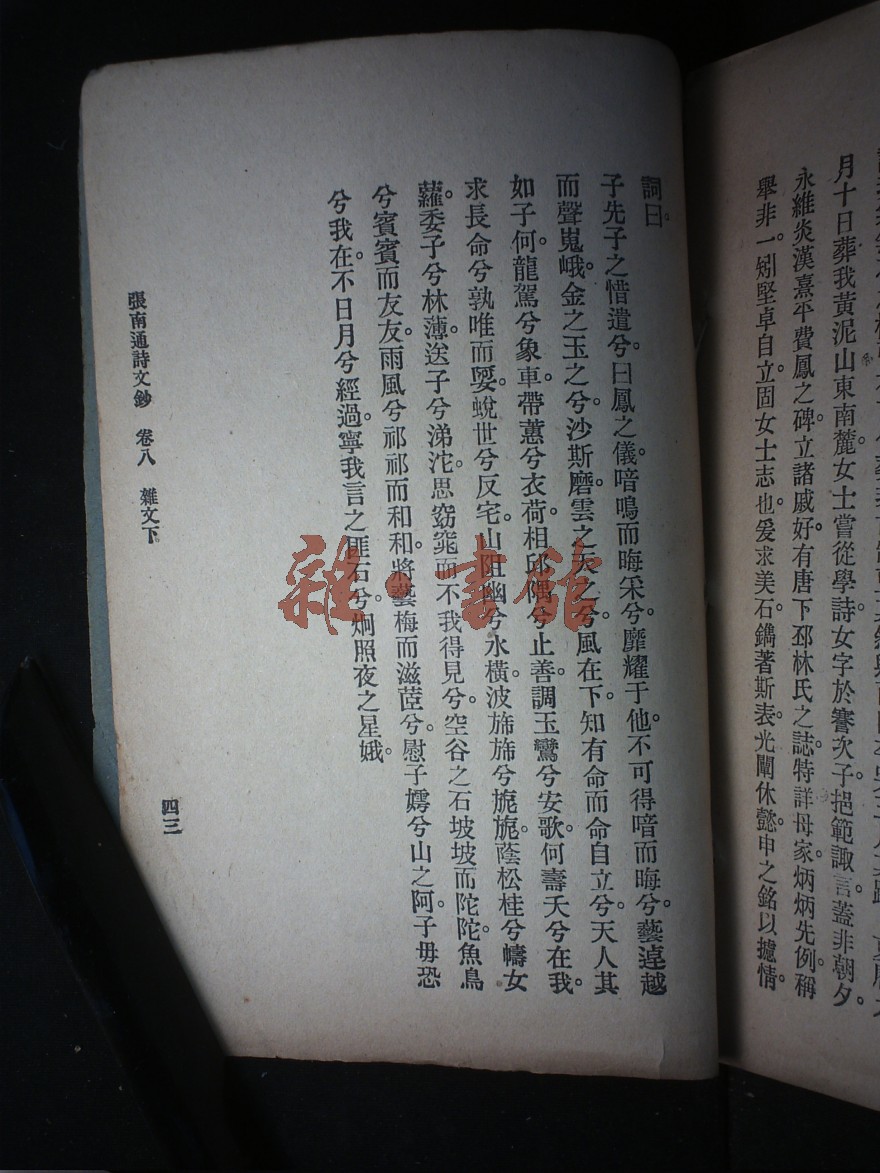 月十日葬我黃泥山東南麓。女士嘗從學詩女字於謇次子。挹範諏言蓋非朝夕。
永維炎漢熹平費鳳之碑立諸戚好。有唐下邳林氏之誌。特詳母家。炳炳先例。稱
舉非一。矧堅卓自立。固女士志也。爰求美石。鐫著斯表。光闡休懿。申之銘以攄情。
詞曰。
子先子之惜遣兮。曰鳳之儀。喑鳴而晦采兮。靡耀于他。不可得喑而晦兮。藝逴越
而聲嵬峨。金之玉之兮。沙斯磨。雲之天之兮。風在下。知有命而命自立兮。天人其
如子何。龍駕兮象車。帶蕙兮衣荷。相邱隅兮止善。調玉鸞兮安歌。何壽夭兮在我。
求長命兮孰唯而婴。蛻世兮反宅。山阻幽兮水橫波。旆旆兮旎旎。蔭松桂兮幬女
蘿。委子兮林薄。送子兮涕沱。思窈窕而不我得見兮。空谷之石坡坡而陀陀。魚鳥
兮賓賓而友友。雨風兮祁祁而和和。將藝梅而滋茝兮。慰子嫮兮山之阿。子毋恐
兮我在。不日月兮經過。寧我言之匪石兮。炯照夜之星娥。
張南通詩文鈔 卷八 雜文下
四三
雜·書館